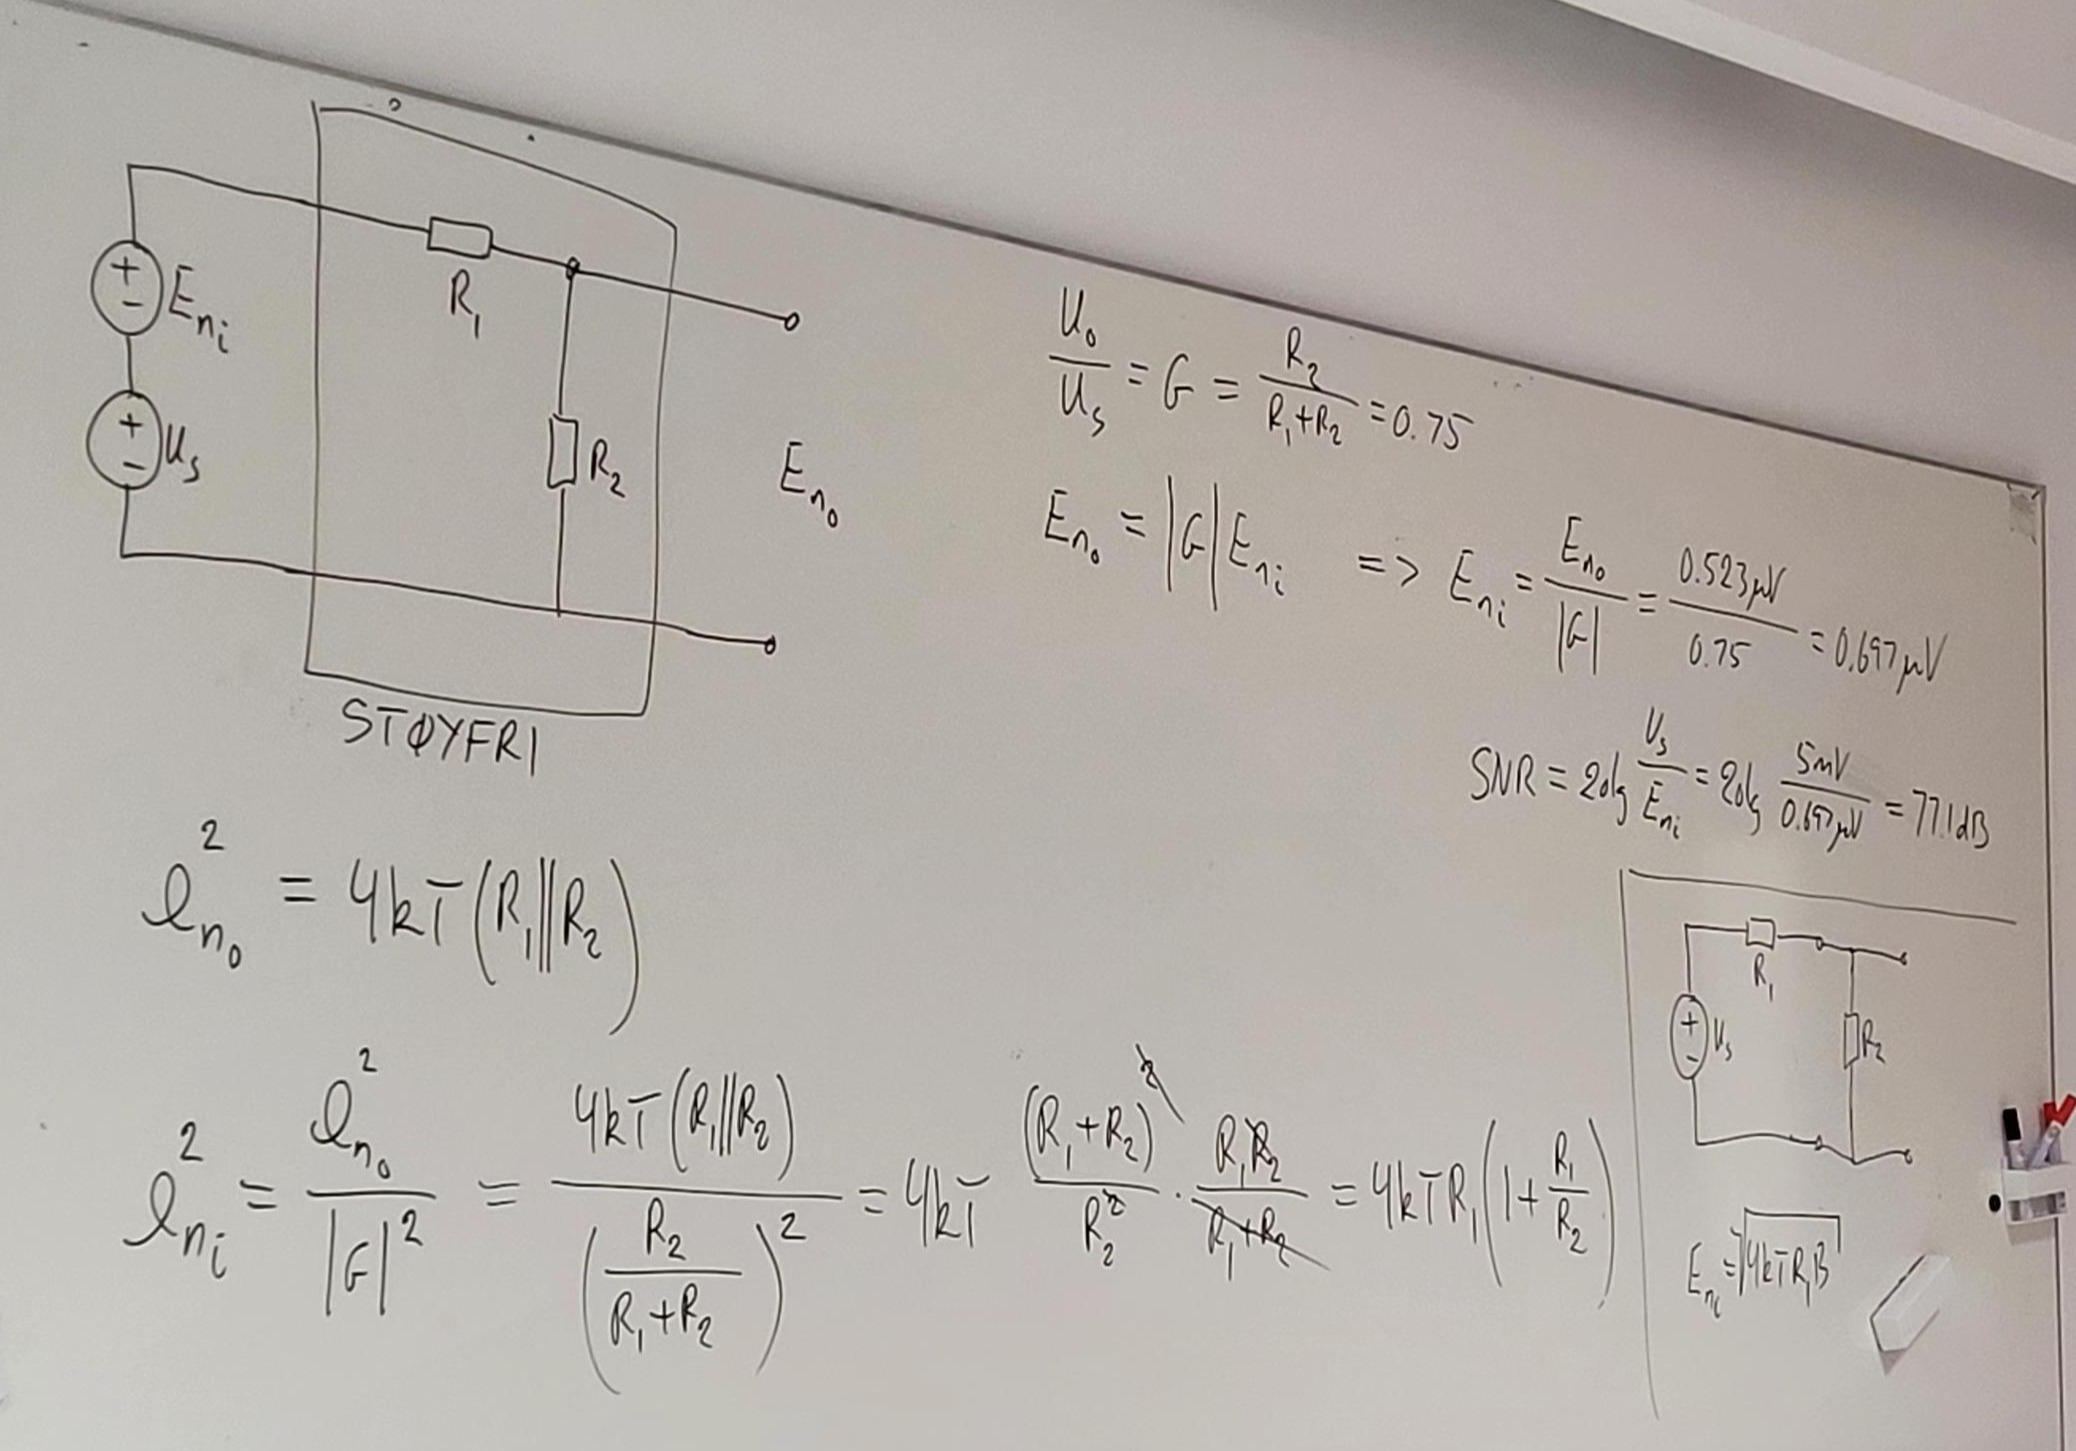 E_ni
U_s
R_1
R_2
E_no
STØYFRI
U_o/U_s = G = R_2/(R_1+R_2) = 0.75
E_no = |G|E_ni => E_ni = E_no/|G| = 0.523μV/0.75 = 0.697μV
SNR = 20lg U_s/E_ni = 20lg 5mV/0.697μV = 77.1dB
e_no^2 = 4kT(R_1||R_2)
e_ni^2 = e_no^2/|G|^2 = 4kT(R_1||R_2)/(R_2/(R_1+R_2))^2 = 4kT (R_1+R_2)^2/R_2^2 · R_1R_2/(R_1+R_2) = 4kTR_1(1+R_1/R_2)
R_1
U_s
R_2
E_ni = √(4kTR_1B)